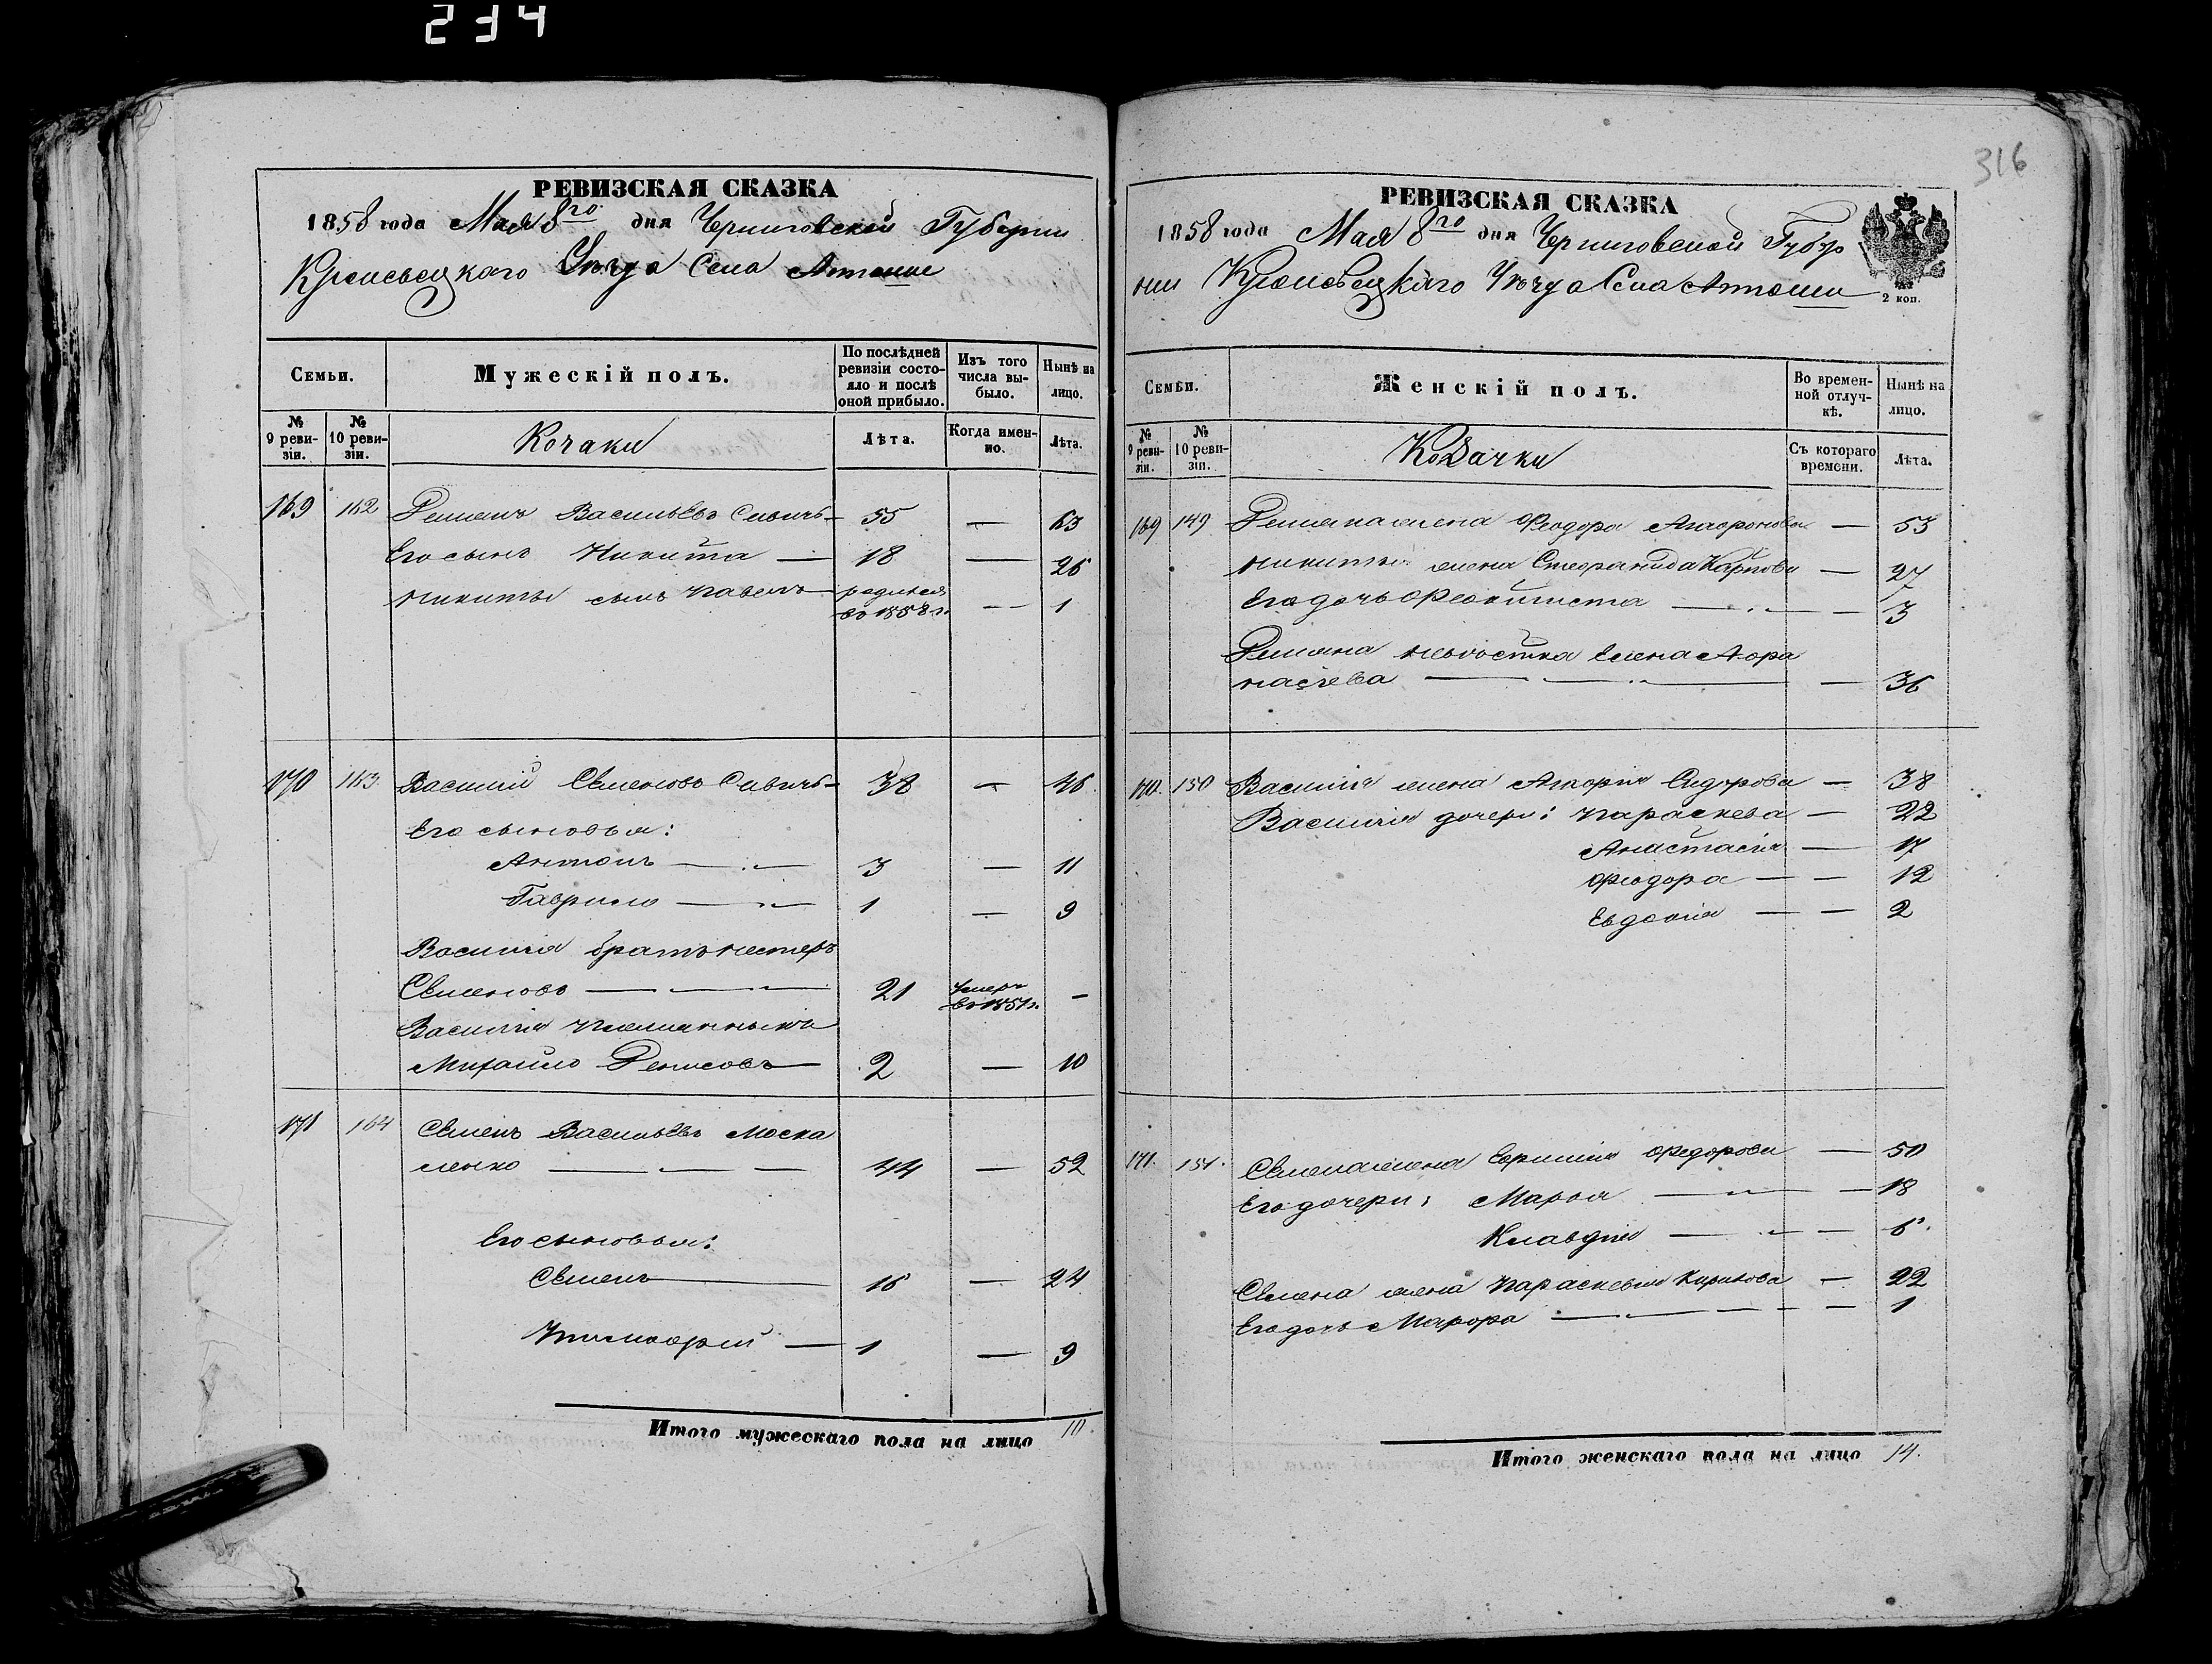 234
316
РЕВИЗСКАЯ СКАЗКА
1858 года Мая 8го дня Черниговской Губернии
Кролевецкаго Уѣзда Села
Семьи.
Мужескій полъ.
По послѣдней ревизіи состояло и послѣ оной прибыло.
Изъ того числа выбыло.
Нынѣ на лицо.
№ 9 ревизіи.
№ 10 ревизіи.
Козаки
Лѣта.
Когда именно.
Лѣта.
169 162 Васильевъ Савичъ 55 — 63
Его сынъ Никита — 18 — 26
Никиты сынъ Павелъ — родился
въ 1858 г. — 1
170 163 Василий Семеновъ Савичъ 38 — 46
Его сыновья:
Антонъ — 3 — 11
Гаврило — 1 — 9
Василия братъ Нестеръ
Семеновъ — 21 Умеръ въ 1851 г. —
Василия племянникъ
Михайло Денисовъ — 2 — 10
171 164 Семенъ Васильевъ Моска
ленко — 44 — 52
Его сыновья:
Семенъ — 16 — 24
Тимофей — 1 — 9
Итого мужескаго пола на лицо 10.
РЕВИЗСКАЯ СКАЗКА
1858 года Мая 8го дня Черниговской Губер
нии Кролевецкаго Уѣзда Села
2 коп.
Семьи.
Женскій полъ.
Во временной отлучкѣ.
Нынѣ на лицо.
№ 9 ревизіи.
№ 10 ревизіи.
Козачки
Съ котораго времени.
Лѣта.
169 149 жена Феодора — 53
Никиты жена Стефанида Карпова — 27
Его дочь Феоктиста — 3
невостка Елена Афа
насьева — 36
170. 150 Василия жена Сидорова — 38
Василия дочери: Параскева — 22
Анастасия — 17
Феодора — 12
Евдокия — 2
171. 151. Семена жена Ефимия Федорова — 50
Его дочери: Марья — 18
Клавдия — 6
Семена жена Параскевия — 22
Его дочь Марфа — 1
Итого женскаго пола на лицо 14.